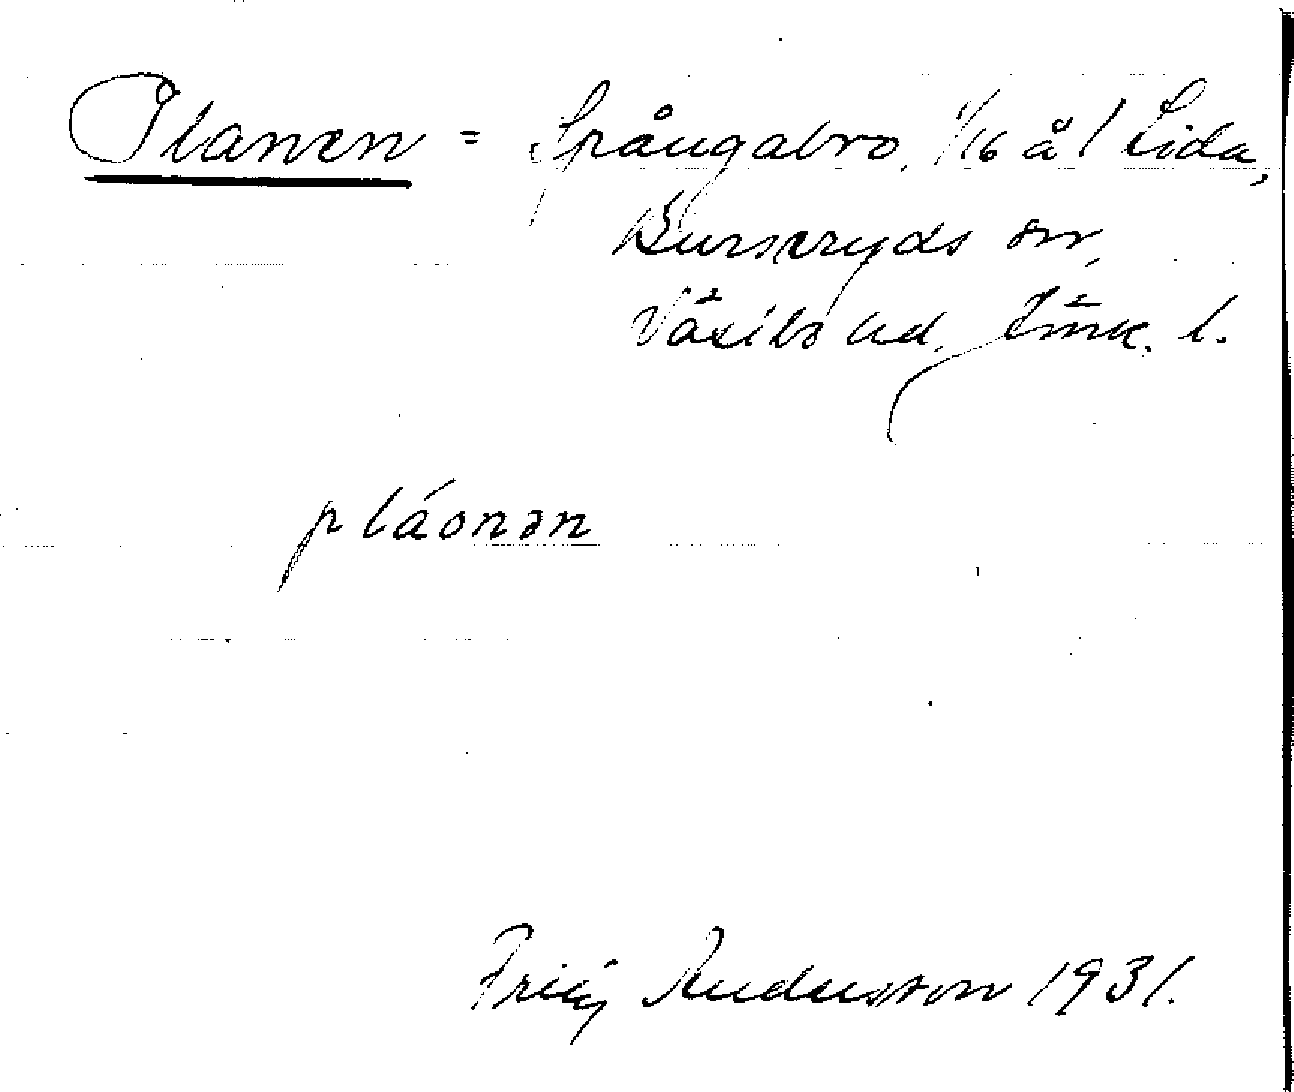 Planen = Spångabro, 1/16 å 1 Lida,
Burseryds sn,
Västbo hd, Jönk. l.
pláonən
Fritz Andersson 1931.